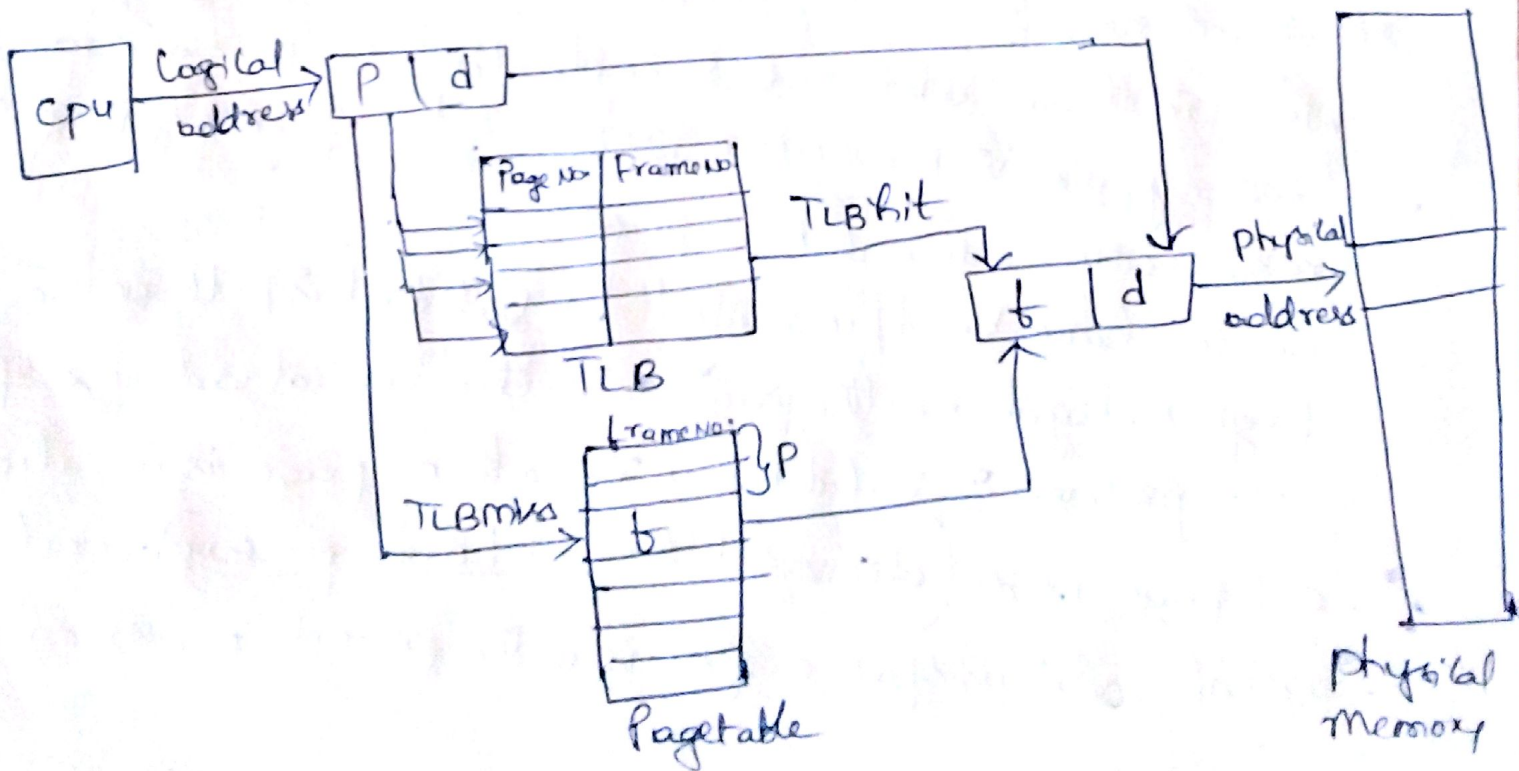 CPU
Logical
address
P d
Page No Frame No
TLB hit
TLB
f d
physical
address
frame No.
P
TLB miss
f
Pagetable
physical
Memory